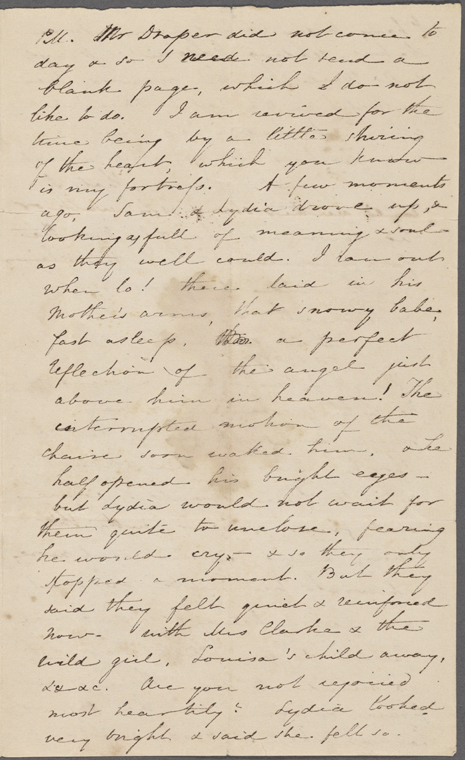 P.M. Mr Draper did not come to
day & so I need not send a
blank page, which I do not
like to do. I am revived for the
time being by a little stirring
of the heart, which you know
is my fortress. A few moments
ago, Sam. & Lydia drove up, &
looking as full of meaning & soul
as they well could. I ran out
when lo! there laid in his
mother's arms, that snowy babe,
fast asleep, a perfect
reflection of the angel just
above him in heaven! The
interrupted motion of the
chaise soon waked him, & he
half opened his bright eyes –
but Lydia would not wait for
them quite to unclose, fearing
he would cry – & so they only
stopped a moment. But they
said they felt quiet & reinforced
now – with Mrs Clarke & the
wild girl, Louisa's child away,
&c &c. Are you not rejoiced
most heartily? Lydia looked
very bright & said she felt so.